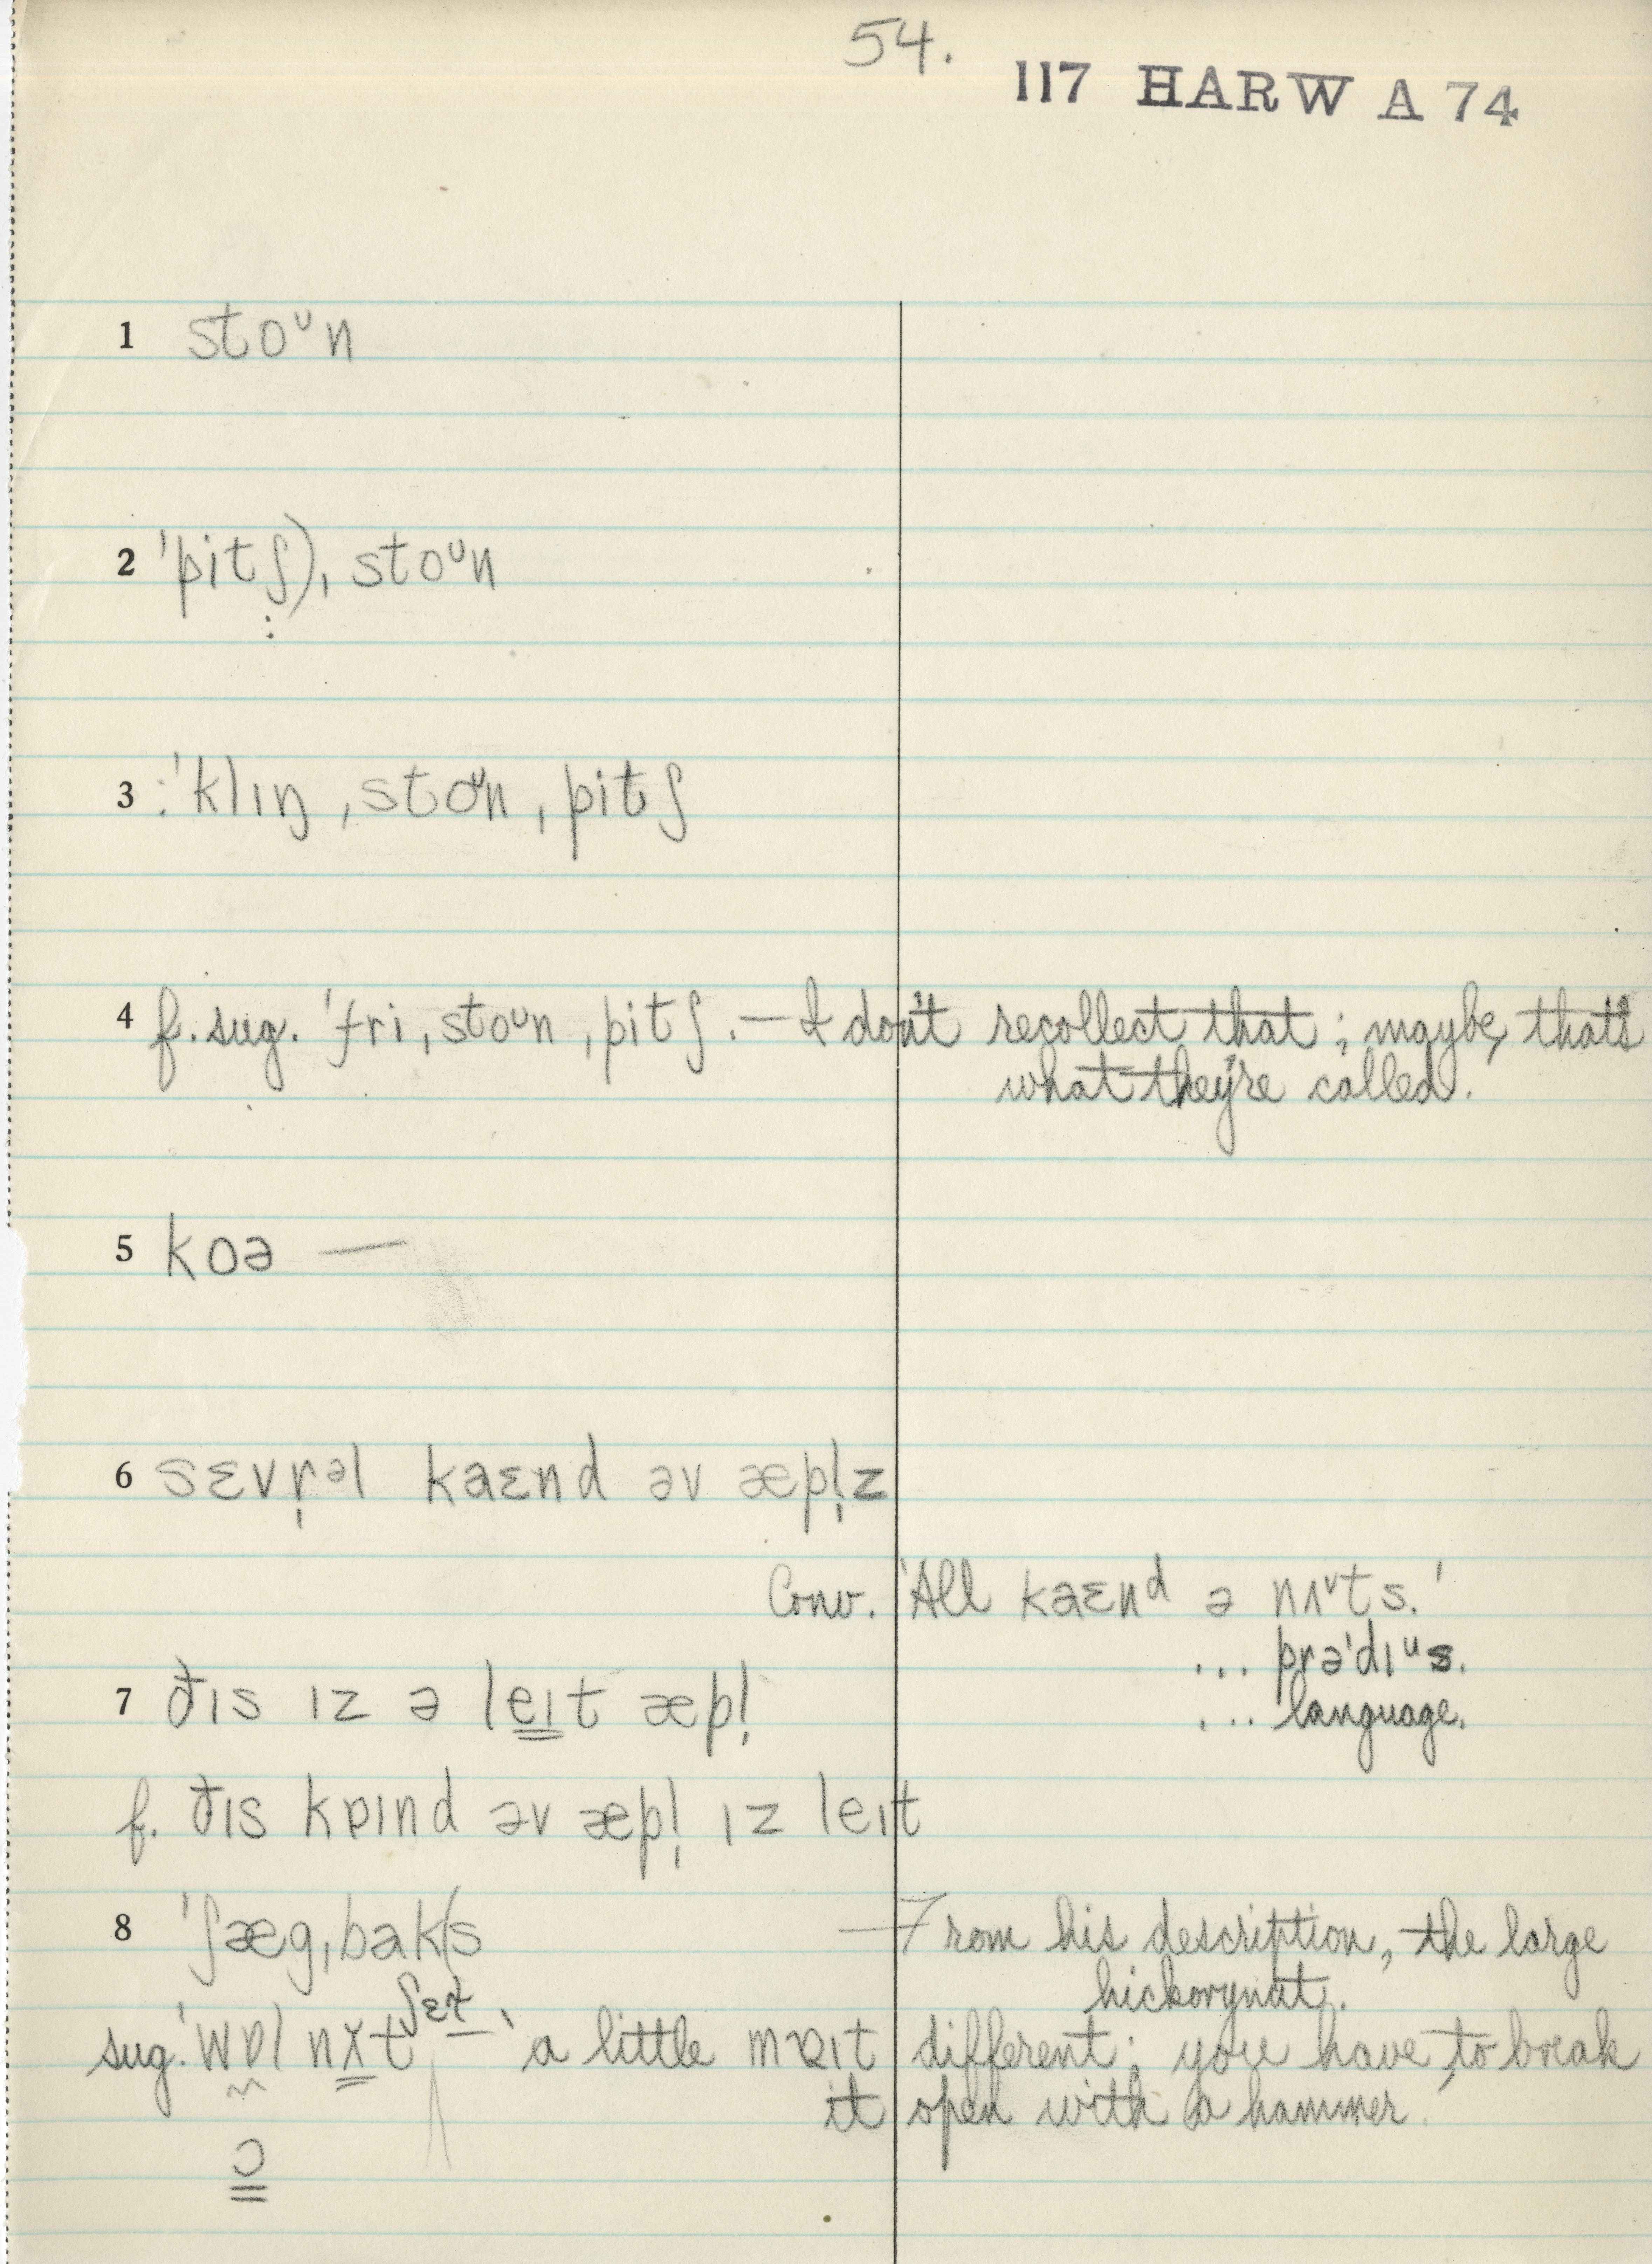 54.
117 HARW A 74
1 stoᶷn
2 ˈpitʃ), stoᶷn
3 :ˈklɪŋ ˌstoᶷn ˌpitʃ
4 f. sug. ˈfri ˌstoᶷn ˌpitʃ. — I don't recollect that; maybe, that's
what they're called.
5 koə —
6 sɛvr̩ᵊl kaɛnd əv æpl̩z
Conv. 'All kaɛnᵈ ə nʌᵛts.'
... prəˈdɪᵘs.
7 ðɪs ɪz ə leɪt æpl̩
... language.
f. ðɪs kɒɪnd əv æpl̩ ɪz leɪt
8 ˈʃæg ˌbak(s — From his description, the large
hickorynut.
sug. ˈwɒl nt ʃɛɫ 'a little mɒɪt different; you have to break
it open with a hammer.
ɔ